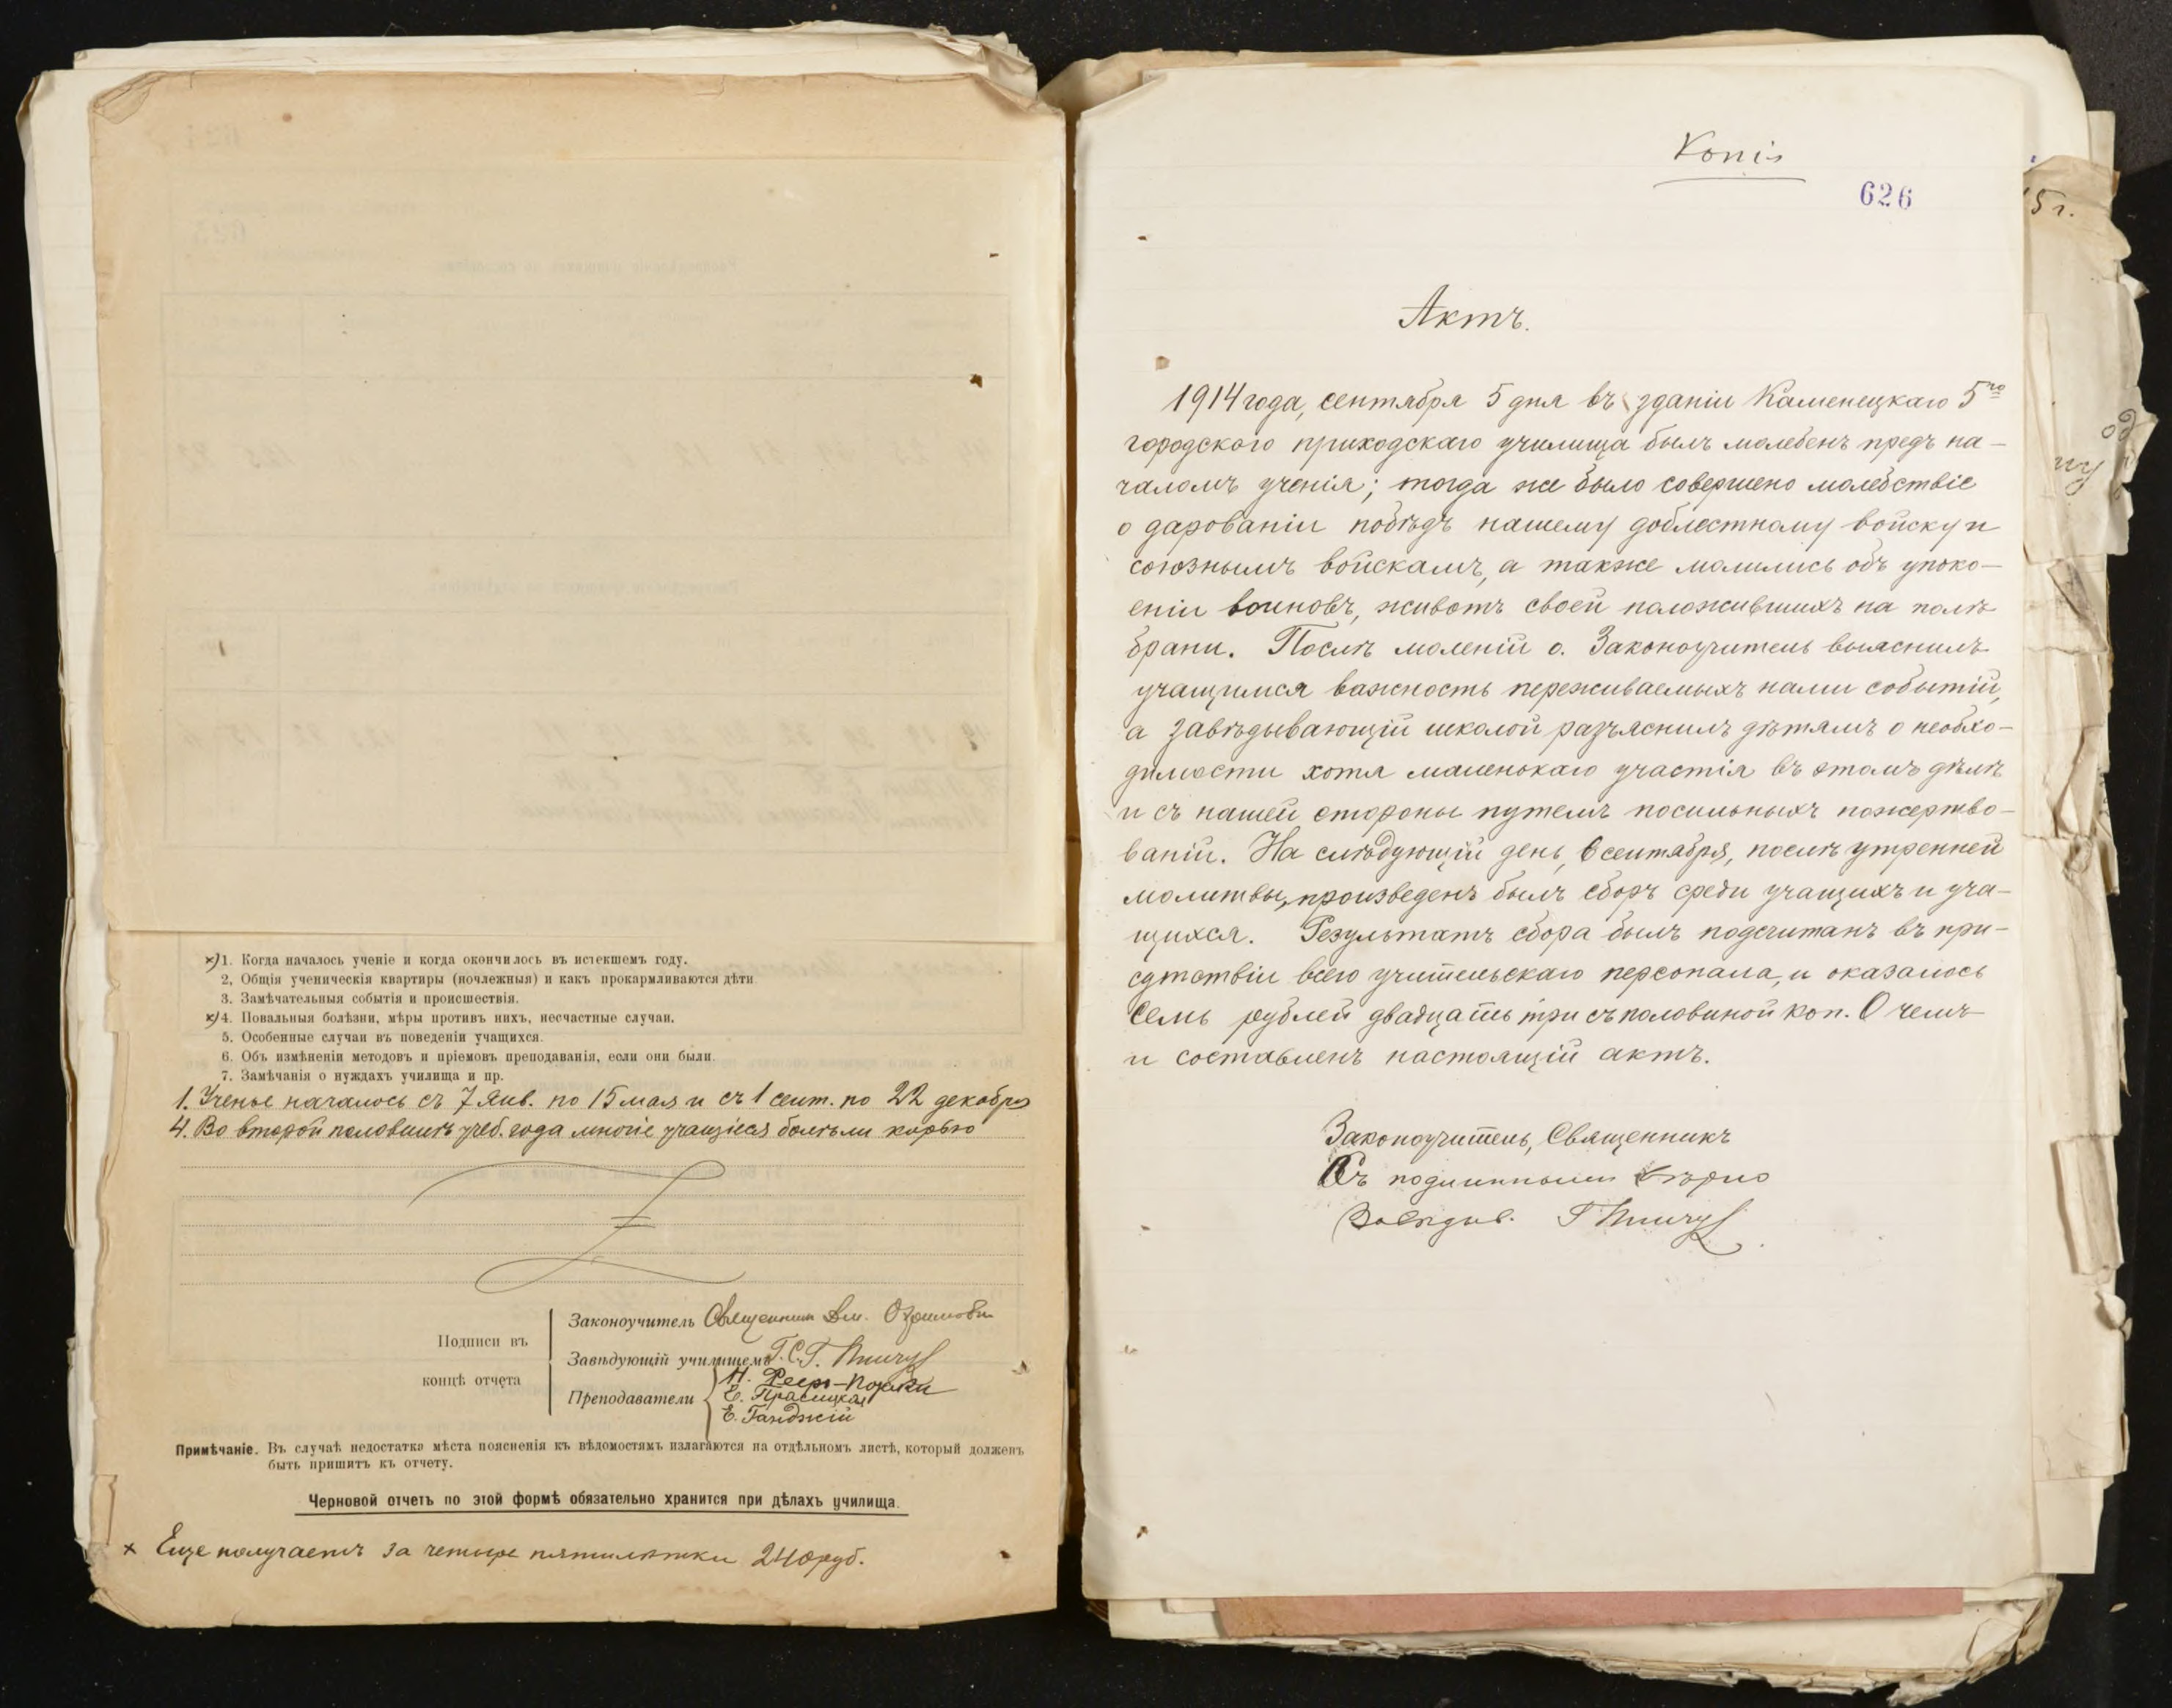 ×)1. Когда началось ученіе и когда окончилось въ истекшемъ году.
2, Общія ученическія квартиры (ночлежныя) и какъ прокармливаются дѣти
3. Замѣчательныя событія и происшествія.
×)4. Повальныя болѣзни, мѣры противъ нихъ, несчастные случаи.
5. Особенные случаи въ поведеніи учащихся.
6. Объ измѣненіи методовъ и пріемовъ преподаванія, если они были.
7. Замѣчанія о нуждахъ училища и пр.
1. Ученье началось съ 7 Янв. по 15 мая и съ 1 сент. по 22 декабря
4. Во второй половинѣ учеб. года многіе учащіеся болѣли корью
Подписи въ
концѣ отчета
Законоучитель Священникъ Дм.
Завѣдующій училищемъ
Преподаватели
Е.
Е. Ганджій
Примѣчаніе. Въ случаѣ недостатка мѣста поясненія къ вѣдомостямъ излагаются на отдѣльномъ листѣ, который долженъ
быть пришитъ къ отчету.
Черновой отчетъ по этой формѣ обязательно хранится при дѣлахъ училища.
× Еще получаетъ за четыре пятилѣтки 240 руб.
Копія
626
Актъ.
1914 года, сентября 5 дня въ зданіи Каменецкаго 5го
городского приходскаго училища былъ молебенъ предъ на-
чаломъ ученія; тогда же было совершено молебствіе
о дарованіи побѣдъ нашему доблестному войску и
союзнымъ войскамъ, а также молились объ упоко-
еніи воиновъ, животъ своей положившихъ на полѣ
брани. Послѣ моленій о. Законоучитель выяснилъ
учащимся важность переживаемыхъ нами событій,
а завѣдывающій школой разъяснилъ дѣтямъ о необхо-
димости хотя маленькаго участія въ этомъ дѣлѣ
и съ нашей стороны путемъ посильныхъ пожертво-
ваній. На слѣдующій день, 6 сентября, послѣ утренней
молитвы, произведенъ былъ сборъ среди учащихъ и уча-
щихся. Результатъ сбора былъ подсчитанъ въ при-
сутствіи всего учительскаго персонала, и оказалось
семь рублей двадцать три съ половиной коп. О чемъ
и составленъ настоящій актъ.
Законоучитель, Священникъ
Съ подлиннымъ вѣрно
Завѣдыв.
5 г.